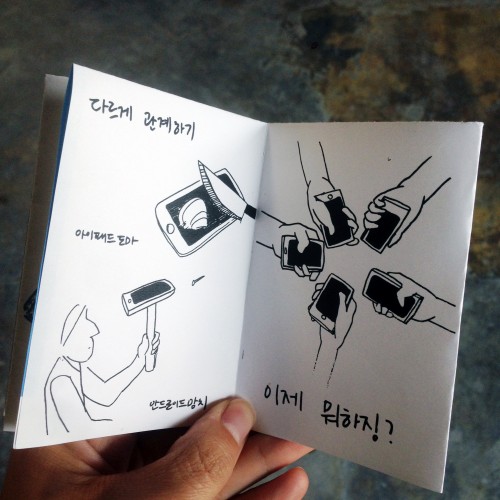 다르게 관계하기
아이패드 도마
안드로이드망치
이제 뭐하징?